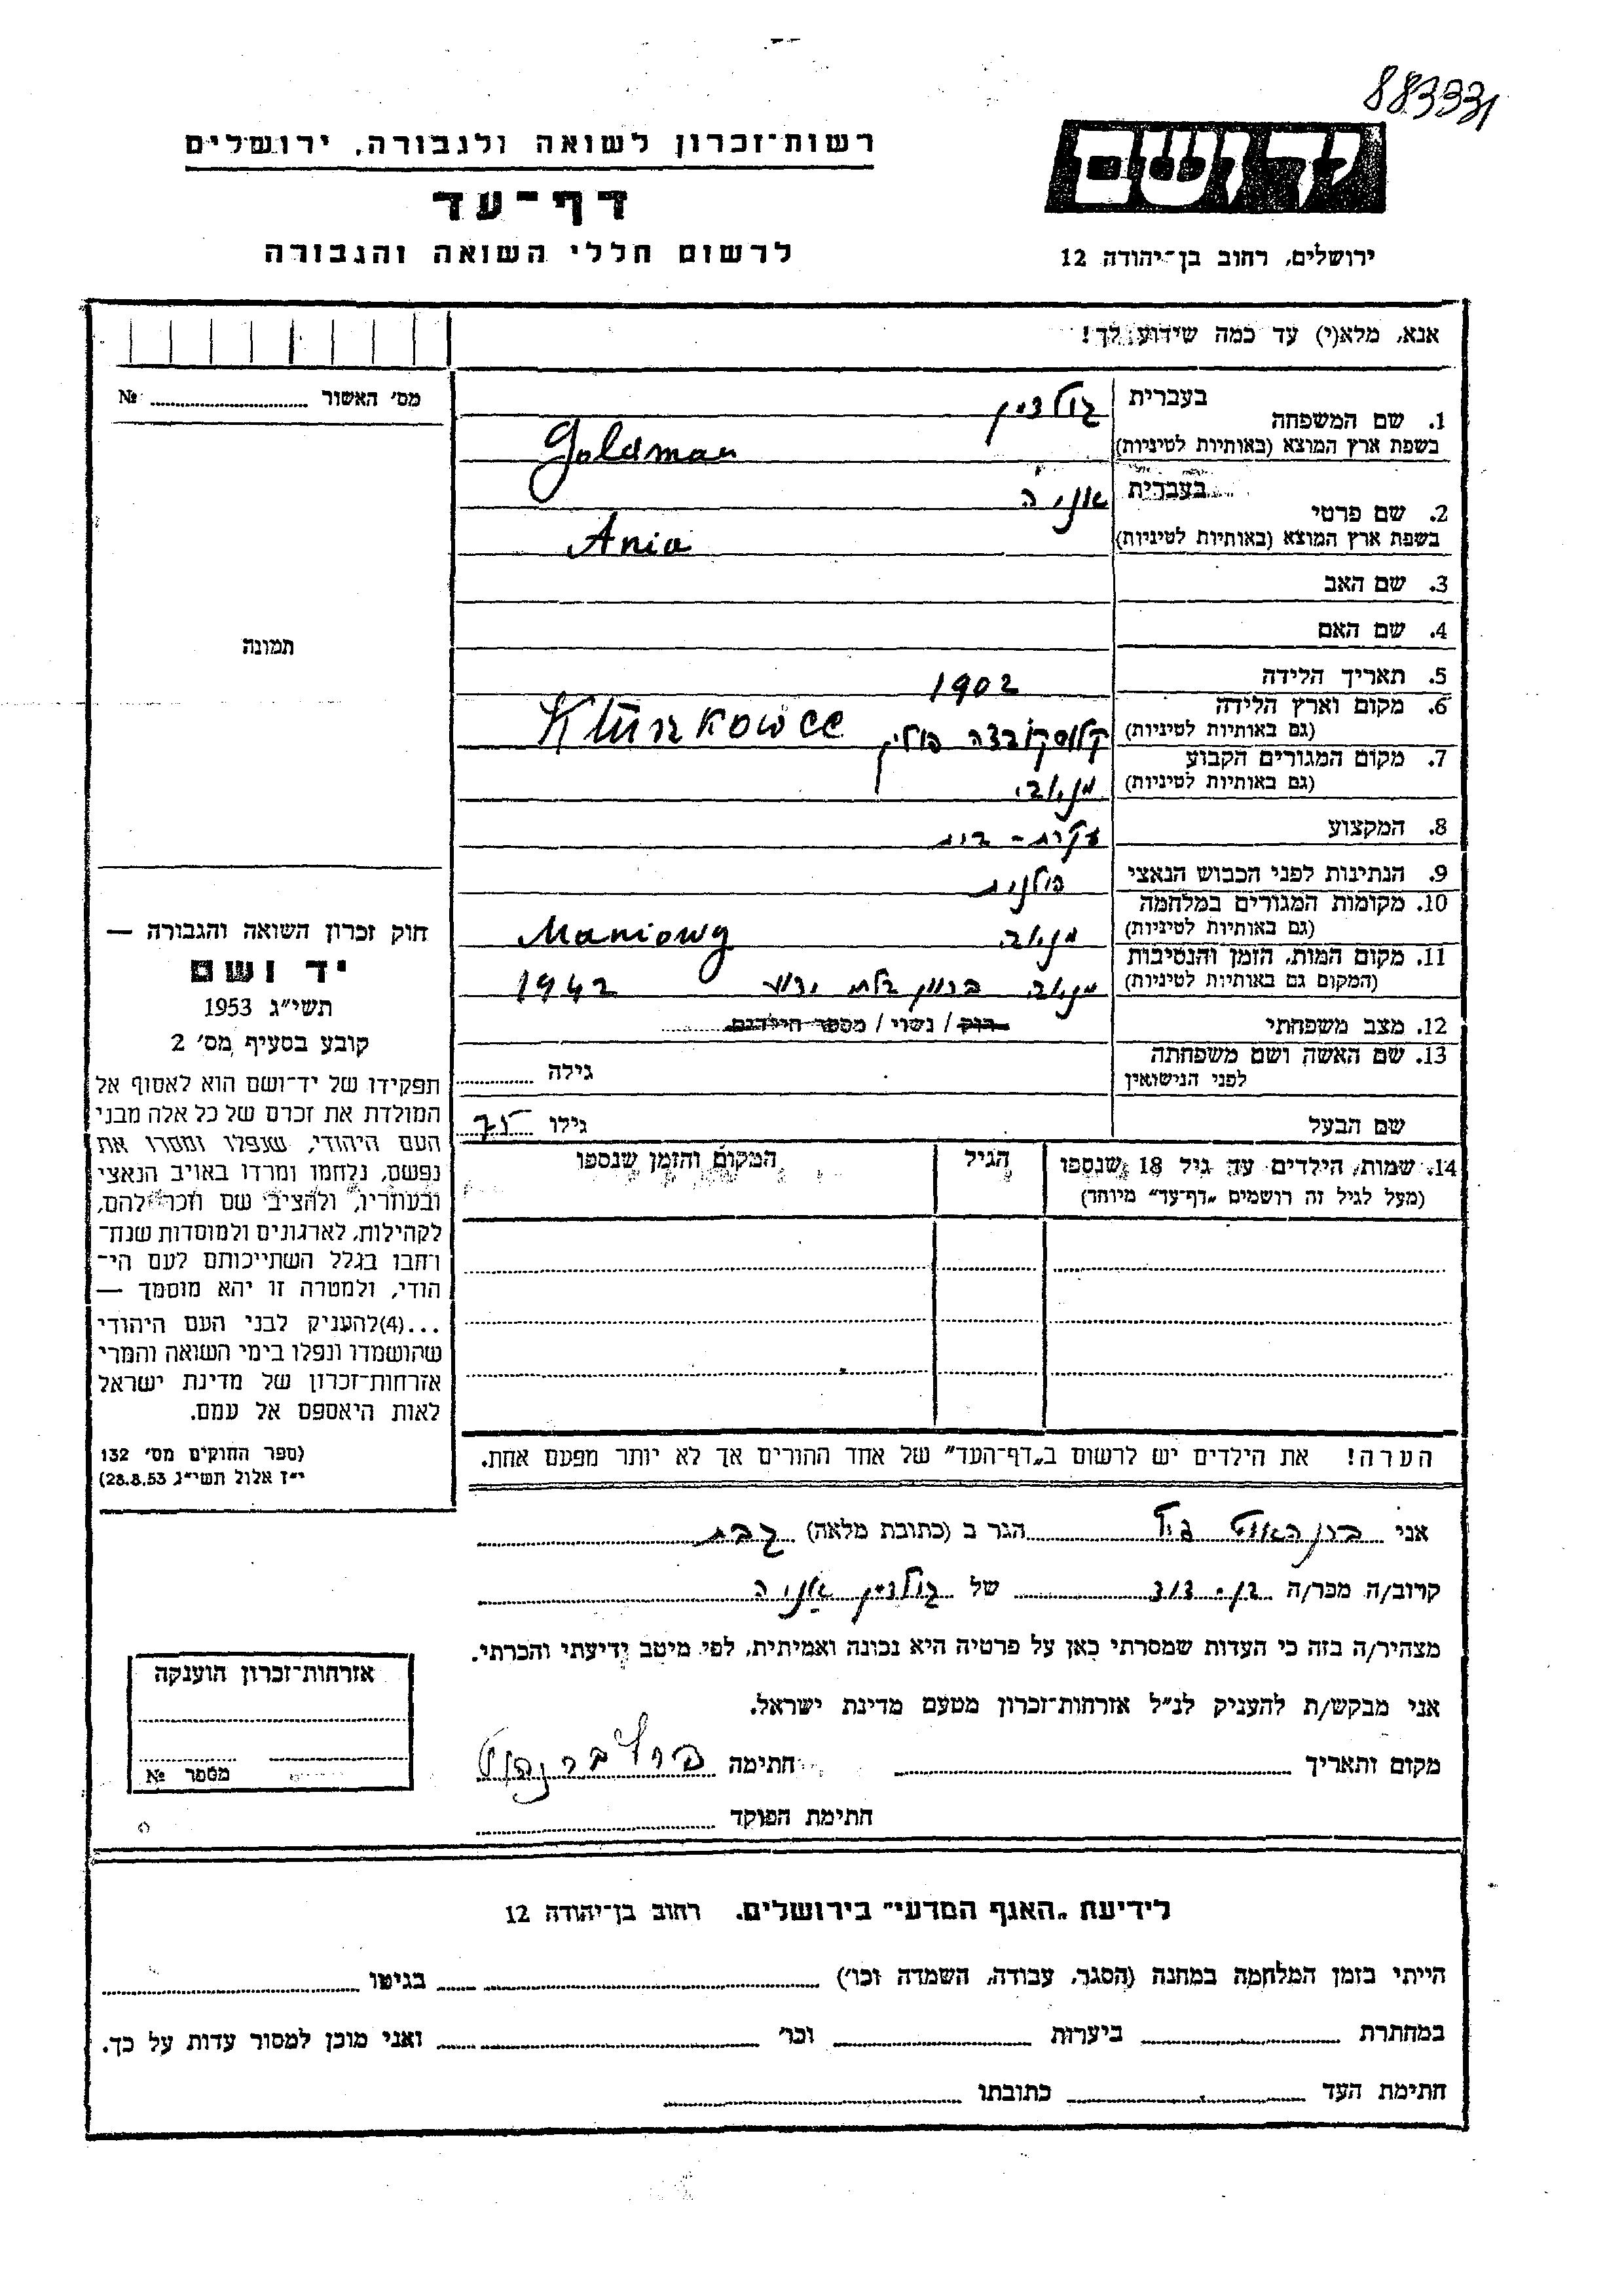 883331
יד ושם
רשות־זכרון לשואה ולגבורה, ירושלים
דף־עד
לרשום חללי השואה והגבורה
ירושלים, רחוב בן־יהודה 12
אנא, מלא(י) עד כמה שידוע לך!
מס׳ האשור № 
1. שם המשפחה
בעברית גולדמן
בשפת ארץ המוצא (באותיות לטיניות) Goldman
2. שם פרטי
בעברית אניה
בשפת ארץ המוצא (באותיות לטיניות) Ania
3. שם האב
4. שם האם
תמונה
5. תאריך הלידה 1902
6. מקום וארץ הלידה
(גם באותיות לטיניות) פולין
7. מקום המגורים הקבוע
(גם באותיות לטיניות)
8. המקצוע עקרת-בית
9. הנתינות לפני הכבוש הנאצי פולנית
10. מקומות המגורים במלחמה
(גם באותיות לטיניות) Maniowy
11. מקום המות, הזמן והנסיבות
(המקום גם באותיות לטיניות) בזמן בלתי ידוע 1942
12. מצב משפחתי רוק / נשוי / מספר הילדים
13. שם האשה ושם משפחתה
לפני הנישואין גילה
שם הבעל גילו
14. שמות הילדים עד גיל 18 שנספו
(מעל לגיל זה רושמים „דף־עד” מיוחד)
הגיל
המקום והזמן שנספו
חוק זכרון השואה והגבורה —
יד ושם
תשי״ג 1953
קובע בסעיף מס׳ 2
תפקידו של יד־ושם הוא לאסוף אל
המולדת את זכרם של כל אלה מבני
העם היהודי, שנפלו ומסרו את
נפשם, נלחמו ומרדו באויב הנאצי
ובעוזריו, ולהציב שם וזכר להם,
לקהילות, לארגונים ולמוסדות שנח־
רחבו בגלל השתייכותם לעם הי־
הודי, ולמטרה זו יהא מוסמך —
...(4)להעניק לבני העם היהודי
שהושמדו ונפלו בימי השואה והמרי
אזרחות־זכרון של מדינת ישראל
לאות היאספם אל עמם.
(ספר החוקים מס׳ 132
י״ז אלול תשי״ג 28.8.53)
הערה! את הילדים יש לרשום ב„דף־העד” של אחד ההורים אך לא יותר מפעם אחת.
אני הגר ב (כתובת מלאה)
קרוב/ה מכר/ה בן-דוד של גולדמן אניה
מצהיר/ה בזה כי העדות שמסרתי כאן על פרטיה היא נכונה ואמיתית, לפי מיטב ידיעתי והכרתי.
אני מבקש/ת להעניק לנ״ל אזרחות־זכרון מטעם מדינת ישראל.
מקום ותאריך חתימה
חתימת הפוקד
אזרחות־זכרון הוענקה
מספר №
לידיעת „האגף המדעי” בירושלים, רחוב בן־יהודה 12
הייתי בזמן המלחמה במחנה (הסגר, עבודה, השמדה וכו׳) בגיטו
במחתרת ביערות וכו׳ ואני מוכן למסור עדות על כך.
חתימת העד כתובתו